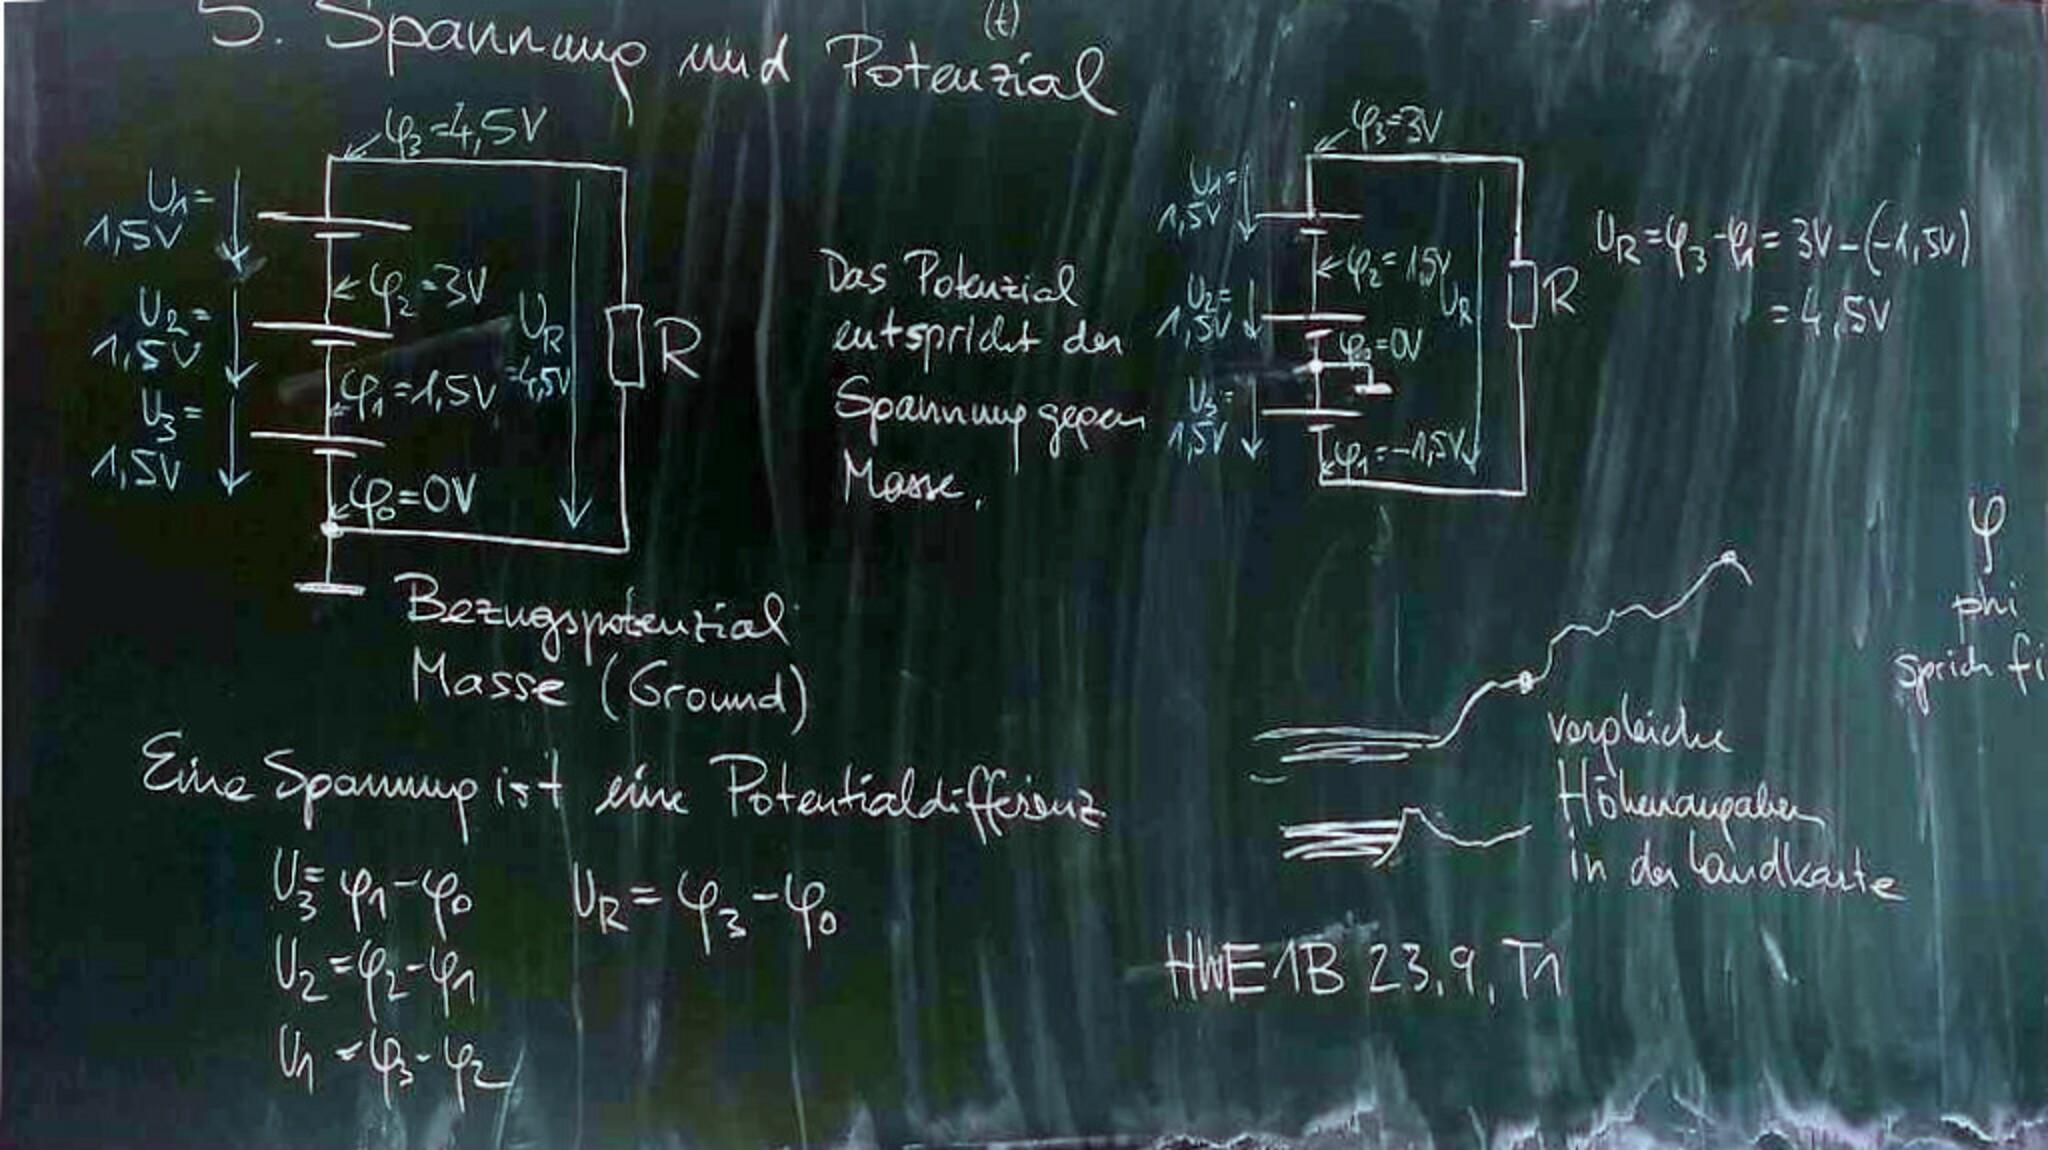 5. Spannung und Potenzial
(t)
φ₃=4,5V
U₁=
1,5V
φ₂=3V
U₂=
1,5V
U_R
=4,5V
R
φ₁=1,5V
U₃=
1,5V
φ₀=0V
Bezugspotenzial
Masse (Ground)
Das Potenzial
entspricht der
Spannung gegen
Masse.
φ₃=3V
U₁=
1,5V
φ₂=1,5V
U₂=
1,5V
U_R
R
φ₀=0V
U₃=
1,5V
φ₁=-1,5V
U_R=φ₃-φ₁=3V-(-1,5V)
=4,5V
φ
phi
sprich fi
vergleiche
Höhenangaben
in der Landkarte
Eine Spannung ist eine Potentialdifferenz
U₃=φ₁-φ₀
U_R=φ₃-φ₀
U₂=φ₂-φ₁
U₁=φ₃-φ₂
HWE1B 23.9. T1